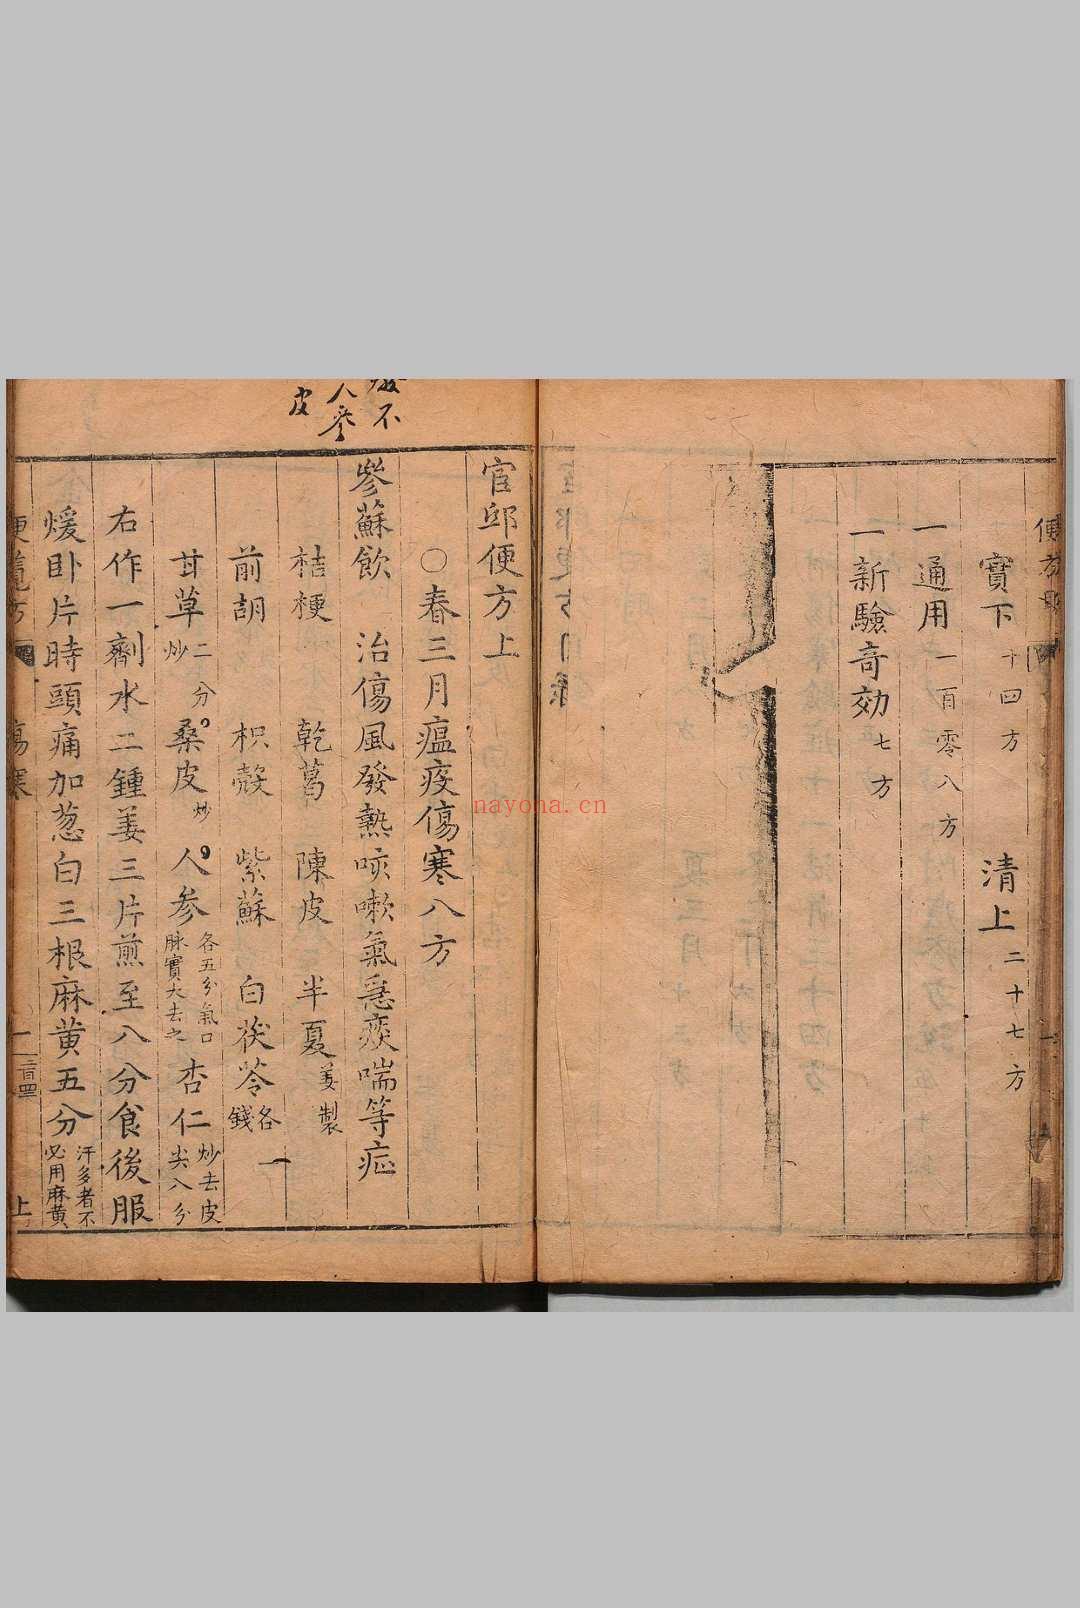 實下十四方 清上二十七方
一通用一百零八方
一新驗奇効七方
人參
皮
官邱便方上
○春三月瘟疫傷寒八方
參蘇飲 治傷風發熱咳嗽氣急痰喘等症
桔梗 乾葛 陳皮 半夏姜製
前胡 枳殼 紫蘇 白茯苓各一錢
甘草炒二分 桑皮炒 人参各五分氣口脉實大去之 杏仁炒去皮尖八分
右作一劑水二鍾姜三片煎至八分食後服
煖卧片時頭痛加葱白三根麻黄五分汗多者不必用麻黄
上
nayona.cn